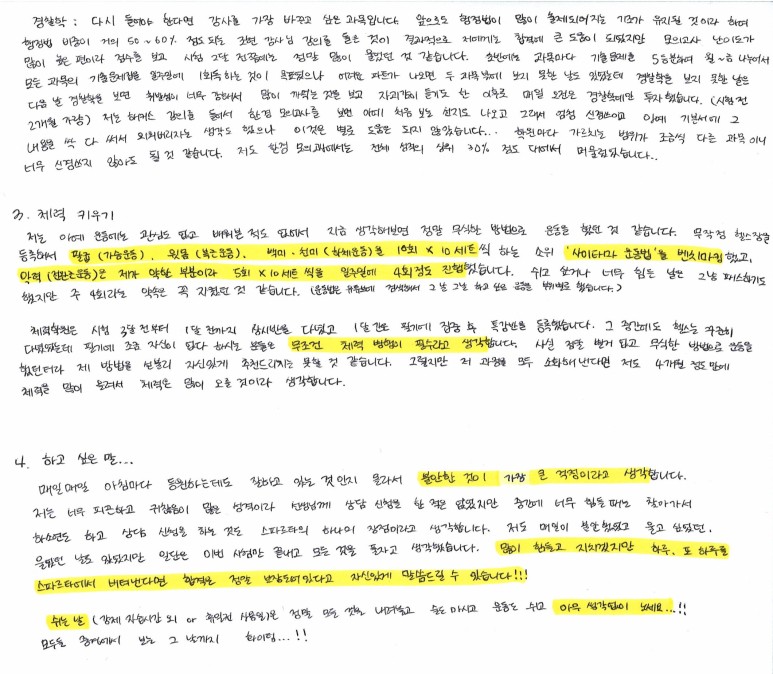 경찰학 : 다시 들어야 한다면 강사를 가장 바꾸고 싶은 과목입니다. 앞으로도 행정법이 많이 출제되어지는 기조가 유지될 것이라 하여
행정법 비중이 거의 50~60% 정도 되는 강사님 강의를 들은 것이 결과적으로 저에게는 합격에 큰 도움이 되었지만 모의고사 난이도가
많이 높은 편이라 점수를 보고 시험 2달 전쯤에는 정말 많이 울었던 것 같습니다. 초반에는 과목마다 기출문제를 5등분하여 월~금 나누어서
모든 과목의 기출문제집을 일주일에 1회독 하는 것이 목표였으나 어려운 파트가 나오면 두 과목밖에 보지 못한 날도 있었는데 경찰학을 보지 못한 날은
다음 날 경찰학을 보면 휘발성이 너무 강해서 많이 까먹는 것을 보고 자괴감이 들기도 한 이후로 매일 오전은 경찰학에만 투자했습니다. (시험 전
2개월 가량) 저는 하여스 강의를 들어서 한경 모의고사를 보면 아예 처음 보는 선지도 나오고 그래서 엄청 신경쓰이고 아예 기본서에 그
내용을 싹 다 써서 외워버리자는 생각도 했으나 이것은 별로 도움은 되지 않았습니다... 학원마다 가르치는 범위가 조금씩 다른 과목이니
너무 신경쓰지 않아도 될 것 같습니다. 저도 한경 모의고사에서는 전체 성적의 상위 30% 정도 대에서 머물렀었습니다..
3. 체력 키우기
저는 아예 운동에는 관심도 없고 배워본 적도 없어서 지금 생각해보면 정말 무식한 방법으로 운동을 했던 것 같습니다. 무작정 헬스장을
등록해서 팔굽 (가슴운동), 윗몸 (복근운동), 백미·천미 (하체운동)을 10회 X 10세트씩 하는 소위 '사이타마 운동법'을 벤치마킹했고,
악력 (전완근 운동)은 제가 약한 부분이라 5회 X 10세트 씩을 일주일에 4회정도 진행했습니다. 쉬고 싶거나 너무 힘든 날은 그냥 패스하기도
했지만 주 4회라는 약속은 꼭 지켰던 것 같습니다. (운동법은 유튜브에 검색해서 그날 그날 하고 싶은 운동을 부위별로 했습니다.)
체력학원은 시험 3달 전부터 1달 전까지 상시반을 다녔고 1달 간은 필기에 집중 후 특강반을 등록했습니다. 그 중간에도 헬스는 꾸준히
다녔었는데 필기에 조금 자신이 있다 하시는 분들은 무조건 체력 병행이 필수라고 생각합니다. 사실 정말 별거 없고 무식한 방법으로 운동을
했던터라 제 방법을 선뜻 자신있게 추천드리지는 못할 것 같습니다. 그렇지만 저 과정을 모두 소화해 낸다면 저도 4개월 정도 만에
체력을 많이 올려서 체력은 많이 오를 것이라 생각합니다.
4. 하고 싶은 말...
매일매일 아침마다 등원하는데도 잘하고 있는 것인지 몰라서 불안한 것이 가장 큰 걱정이라고 생각합니다.
저는 너무 피곤하고 귀찮음이 많은 성격이라 선생님께 상담 신청을 한 적은 없었지만 중간에 너무 힘들 때는 찾아가서
하소연도 하고 상담 신청을 하는 것도 스파르타의 하나의 장점이라고 생각합니다. 저도 매일이 불안했었고 울고 싶었던,
울었던 날도 있었지만 일단은 이번 시험만 끝내고 모든 것을 놓자고 생각했습니다. 많이 힘들고 지치겠지만 하루, 또 하루를
스파르타에서 버텨낸다면 합격은 정말 보장되어있다고 자신있게 말씀드릴 수 있습니다!!!
쉬는 날 (강제 자습시간 외 or 휴일권 사용일)은 정말 모든 것을 내려놓고 술도 마시고 운동도 쉬고 아무 생각없이 노세요...!!
모두들 중경에서 보는 그 날까지 화이팅...!!